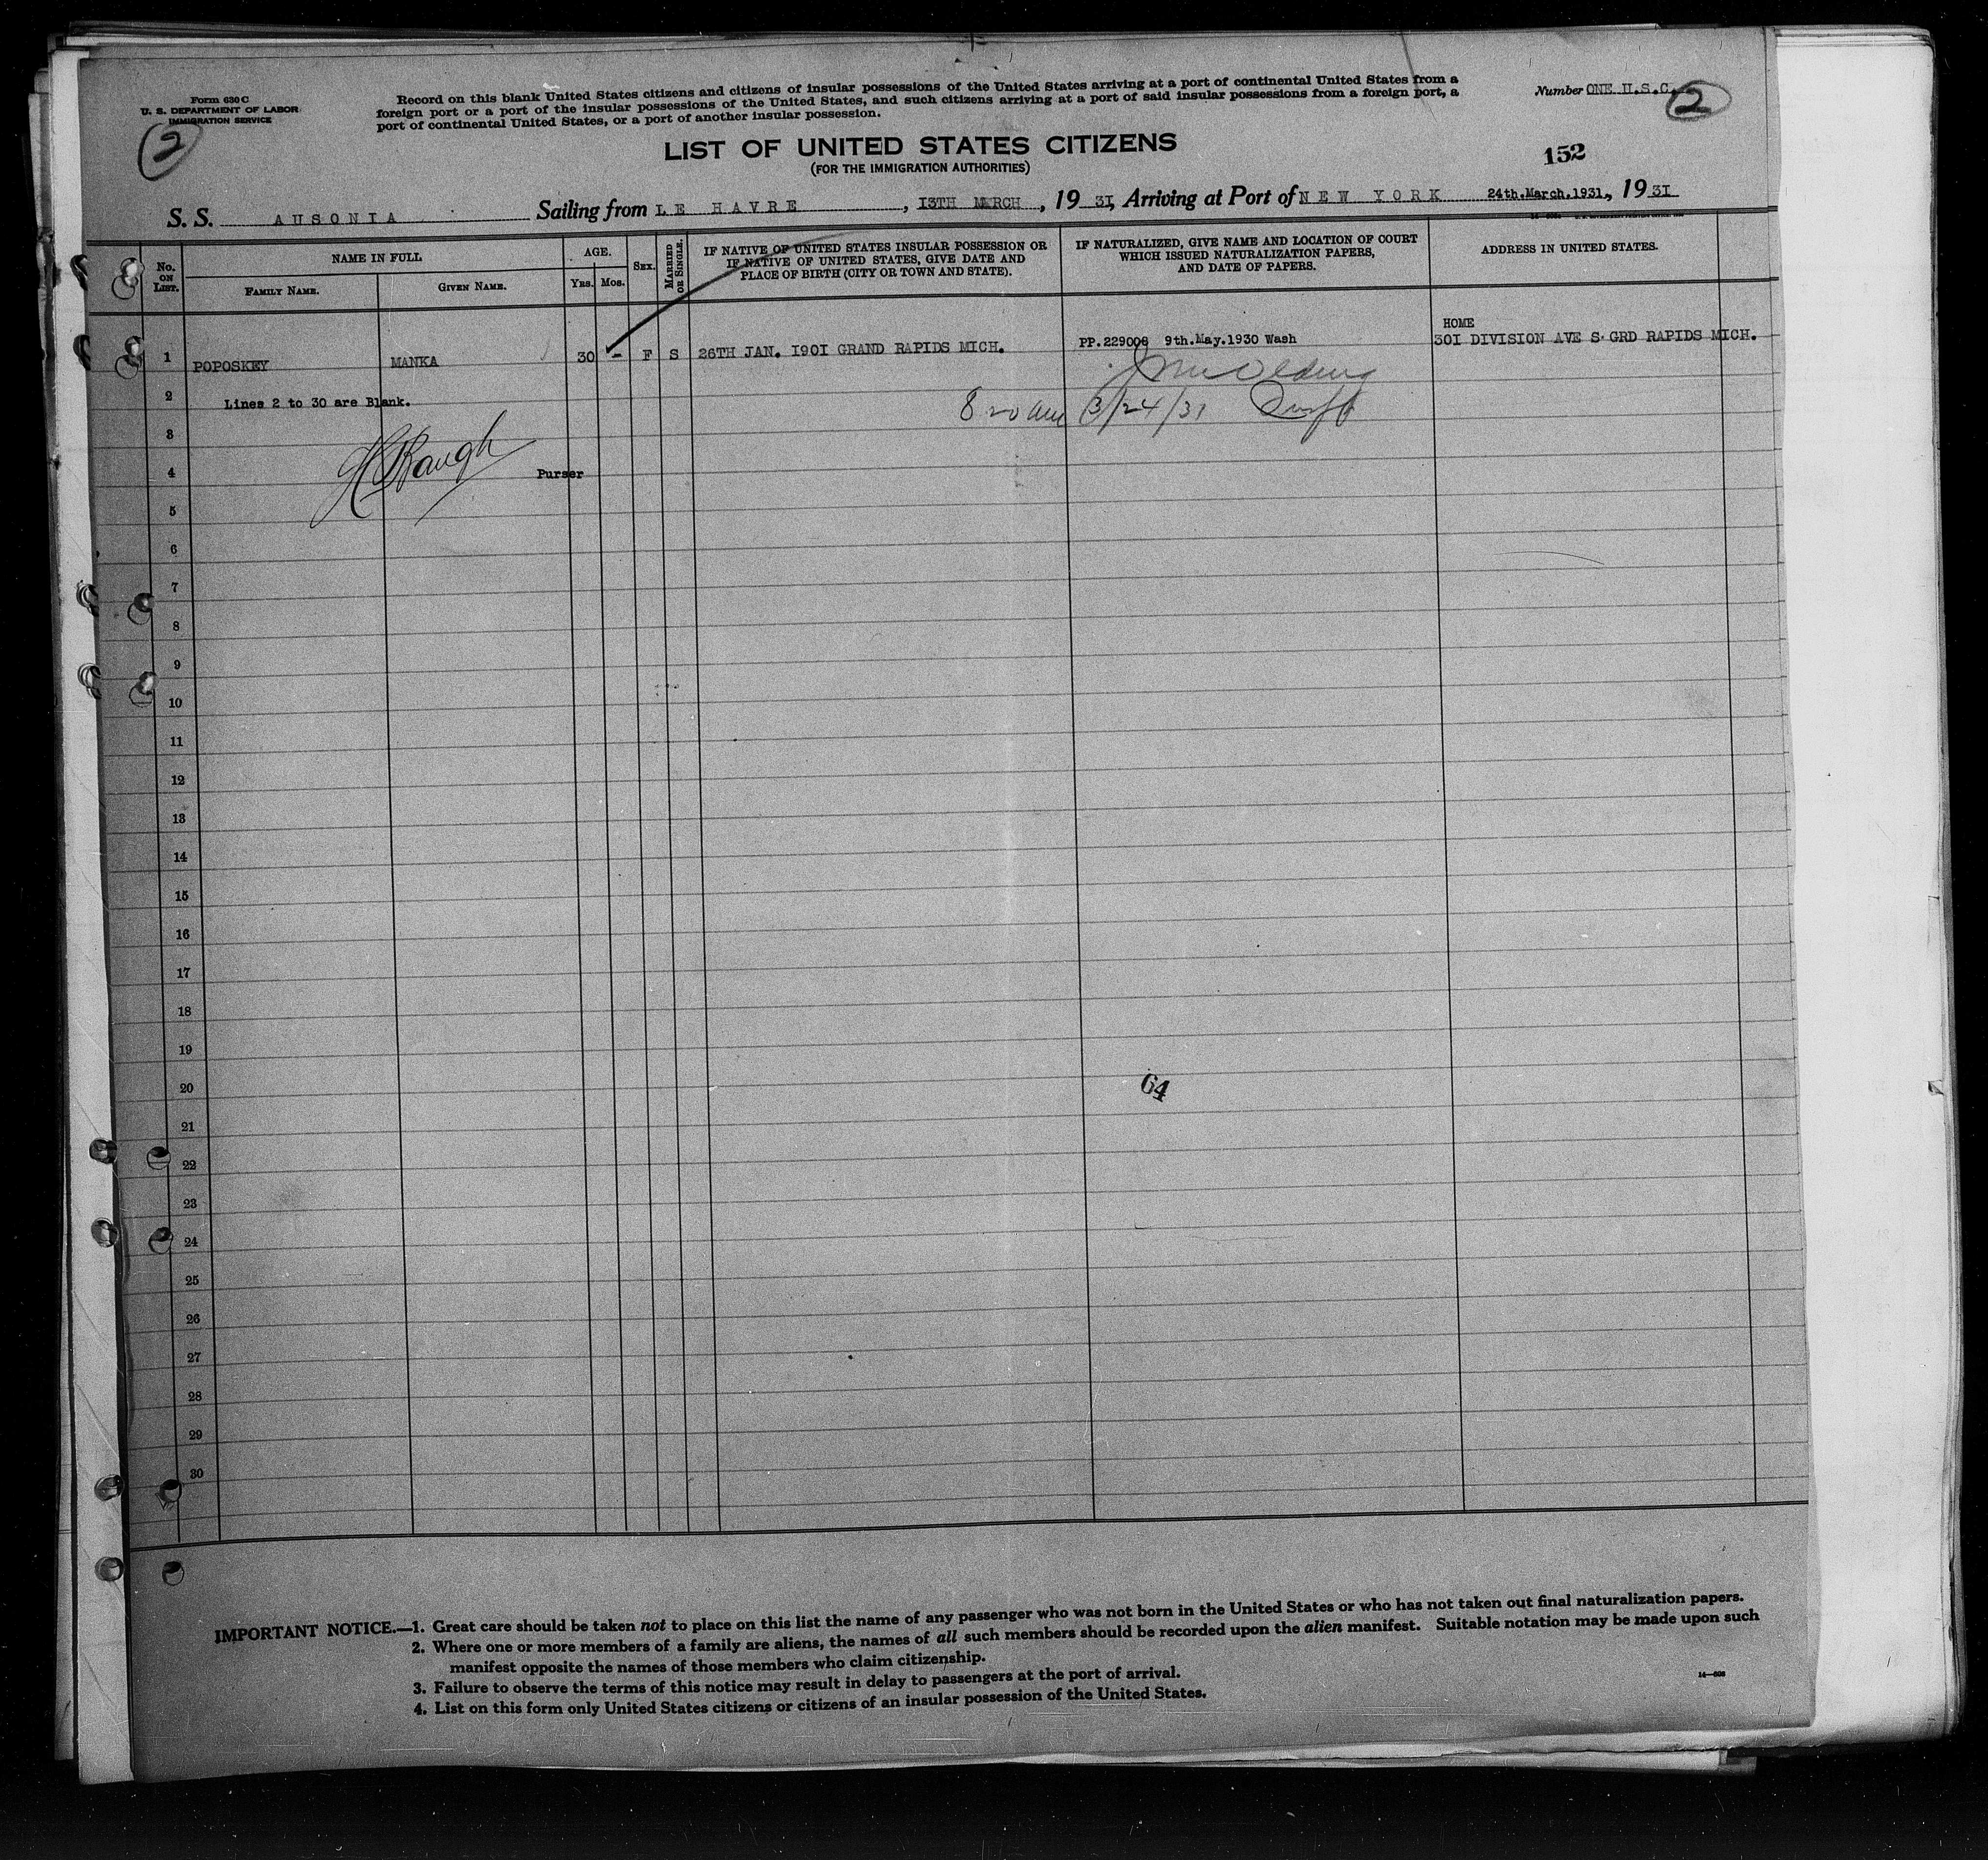 Form 630 C
U. S. DEPARTMENT OF LABOR
IMMIGRATION SERVICE
2
Record on this blank United States citizens and citizens of insular possessions of the United States arriving at a port of continental United States from a
foreign port or a port of the insular possessions of the United States, and such citizens arriving at a port of said insular possessions from a foreign port, a
port of continental United States, or a port of another insular possession.
Number ONE U.S.C.
2
LIST OF UNITED STATES CITIZENS
(FOR THE IMMIGRATION AUTHORITIES)
152
S. S. AUSONIA Sailing from LE HAVRE, 13TH MARCH, 19 31, Arriving at Port of NEW YORK 24th.March.1931., 19 31
No. ON LIST.
NAME IN FULL
FAMILY NAME.
GIVEN NAME.
AGE.
YRS.
MOS.
SEX.
MARRIED OR SINGLE.
IF NATIVE OF UNITED STATES INSULAR POSSESSION OR
IF NATIVE OF UNITED STATES, GIVE DATE AND
PLACE OF BIRTH (CITY OR TOWN AND STATE).
IF NATURALIZED, GIVE NAME AND LOCATION OF COURT
WHICH ISSUED NATURALIZATION PAPERS,
AND DATE OF PAPERS.
ADDRESS IN UNITED STATES.
HOME
1 POPOSKEY MANKA 30 - F S 26TH JAN. 1901 GRAND RAPIDS MICH. PP.229008 9th.May.1930 Wash 301 DIVISION AVE S. GRD RAPIDS MICH.
2 Lines 2 to 30 are Blank. 8 20 am 3/24/31
3
4 Purser
5
6
7
8
9
10
11
12
13
14
15
16
17
18
19
20 64
21
22
23
24
25
26
27
28
29
30
IMPORTANT NOTICE.—1. Great care should be taken not to place on this list the name of any passenger who was not born in the United States or who has not taken out final naturalization papers.
2. Where one or more members of a family are aliens, the names of all such members should be recorded upon the alien manifest. Suitable notation may be made upon such
manifest opposite the names of those members who claim citizenship.
3. Failure to observe the terms of this notice may result in delay to passengers at the port of arrival.
4. List on this form only United States citizens or citizens of an insular possession of the United States.